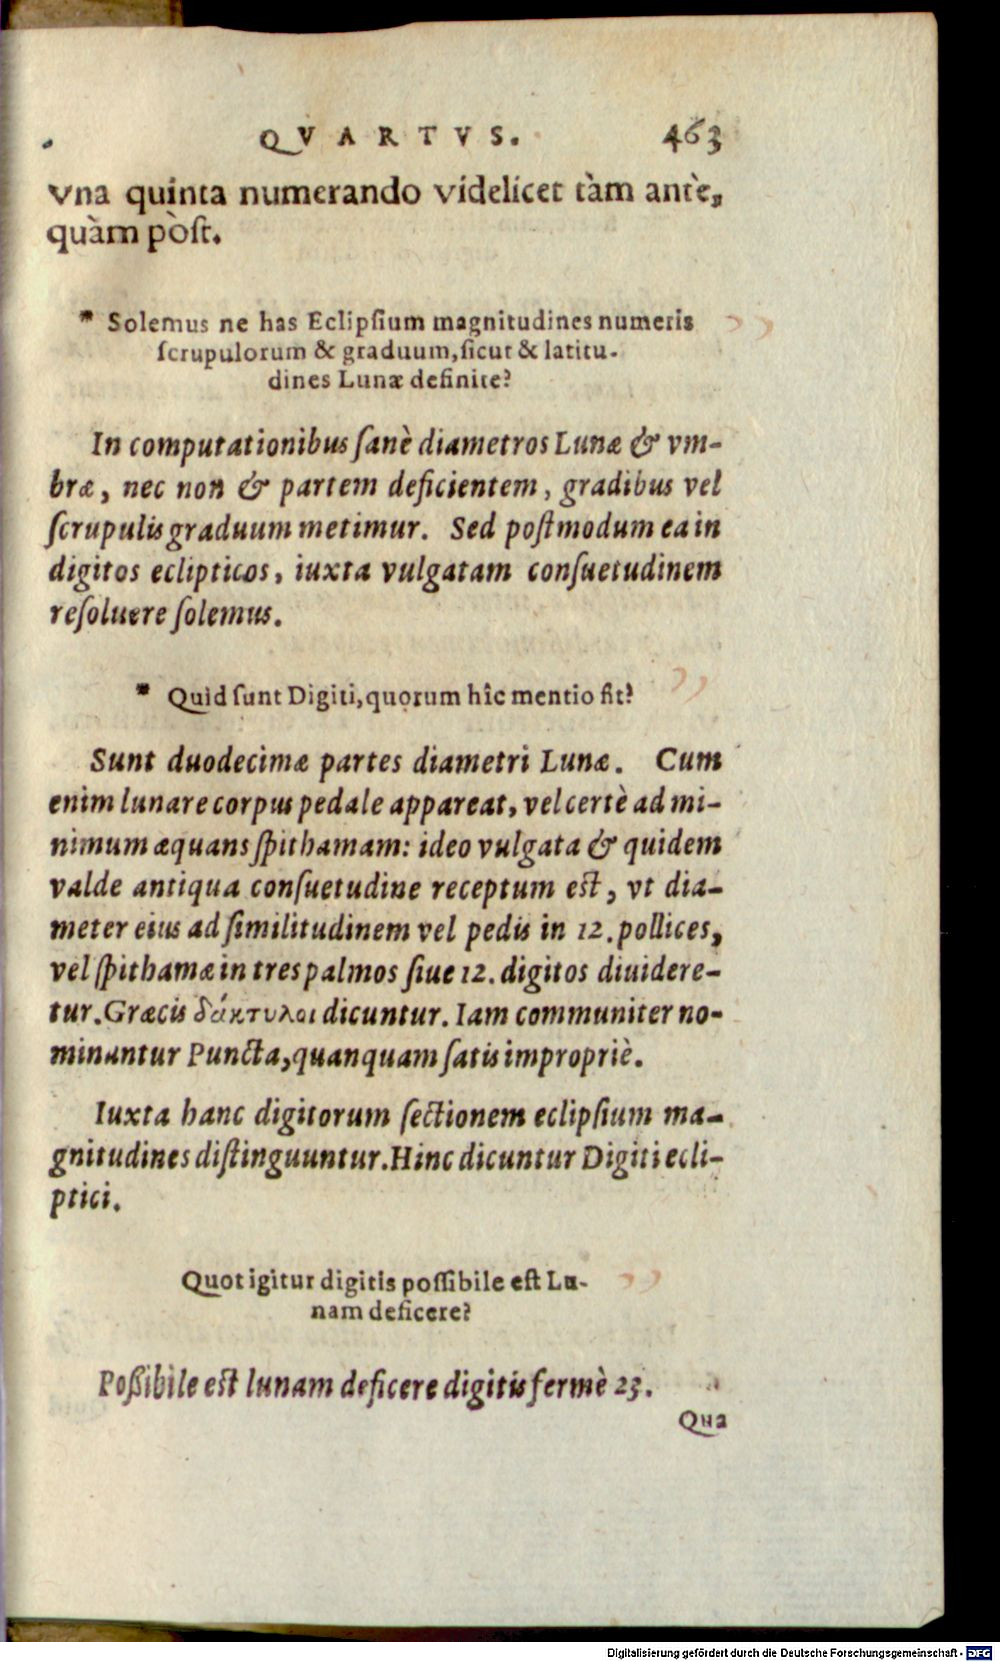 QVARTVS. 463
vna quinta numerando videlicet tàm antè,
quàm pòſt.
* Solemus ne has Eclipſium magnitudines numeris
ſcrupulorum & graduum, ſicut & latitu-
dines Lunæ definire?
In computationibus ſanè diametros Lunæ & vm-
bræ, nec non & partem deficientem, gradibus vel
ſcrupulis graduum metimur. Sed poſtmodum ea in
digitos eclipticos, iuxta vulgatam conſuetudinem
reſoluere ſolemus.
* Quid ſunt Digiti, quorum hîc mentio fit?
Sunt duodecimæ partes diametri Lunæ. Cum
enim lunare corpus pedale appareat, vel certè ad mi-
nimum æquans ſpithamam: ideo vulgata & quidem
valde antiqua conſuetudine receptum eſt, vt dia-
meter eius ad ſimilitudinem vel pedis in 12. pollices,
vel ſpithamæ in tres palmos ſiue 12. digitos diuidere-
tur. Græcis δάκτυλοι dicuntur. Iam communiter no-
minantur Puncta, quanquam ſatis impropriè.
Iuxta hanc digitorum ſectionem eclipſium ma-
gnitudines diſtinguuntur. Hinc dicuntur Digiti ecli-
ptici.
Quot igitur digitis poſſibile eſt Lu-
nam deficere?
Poßibile eſt lunam deficere digitis fermè 23.
Qua
Digitalisierung gefördert durch die Deutsche Forschungsgemeinschaft - DFG